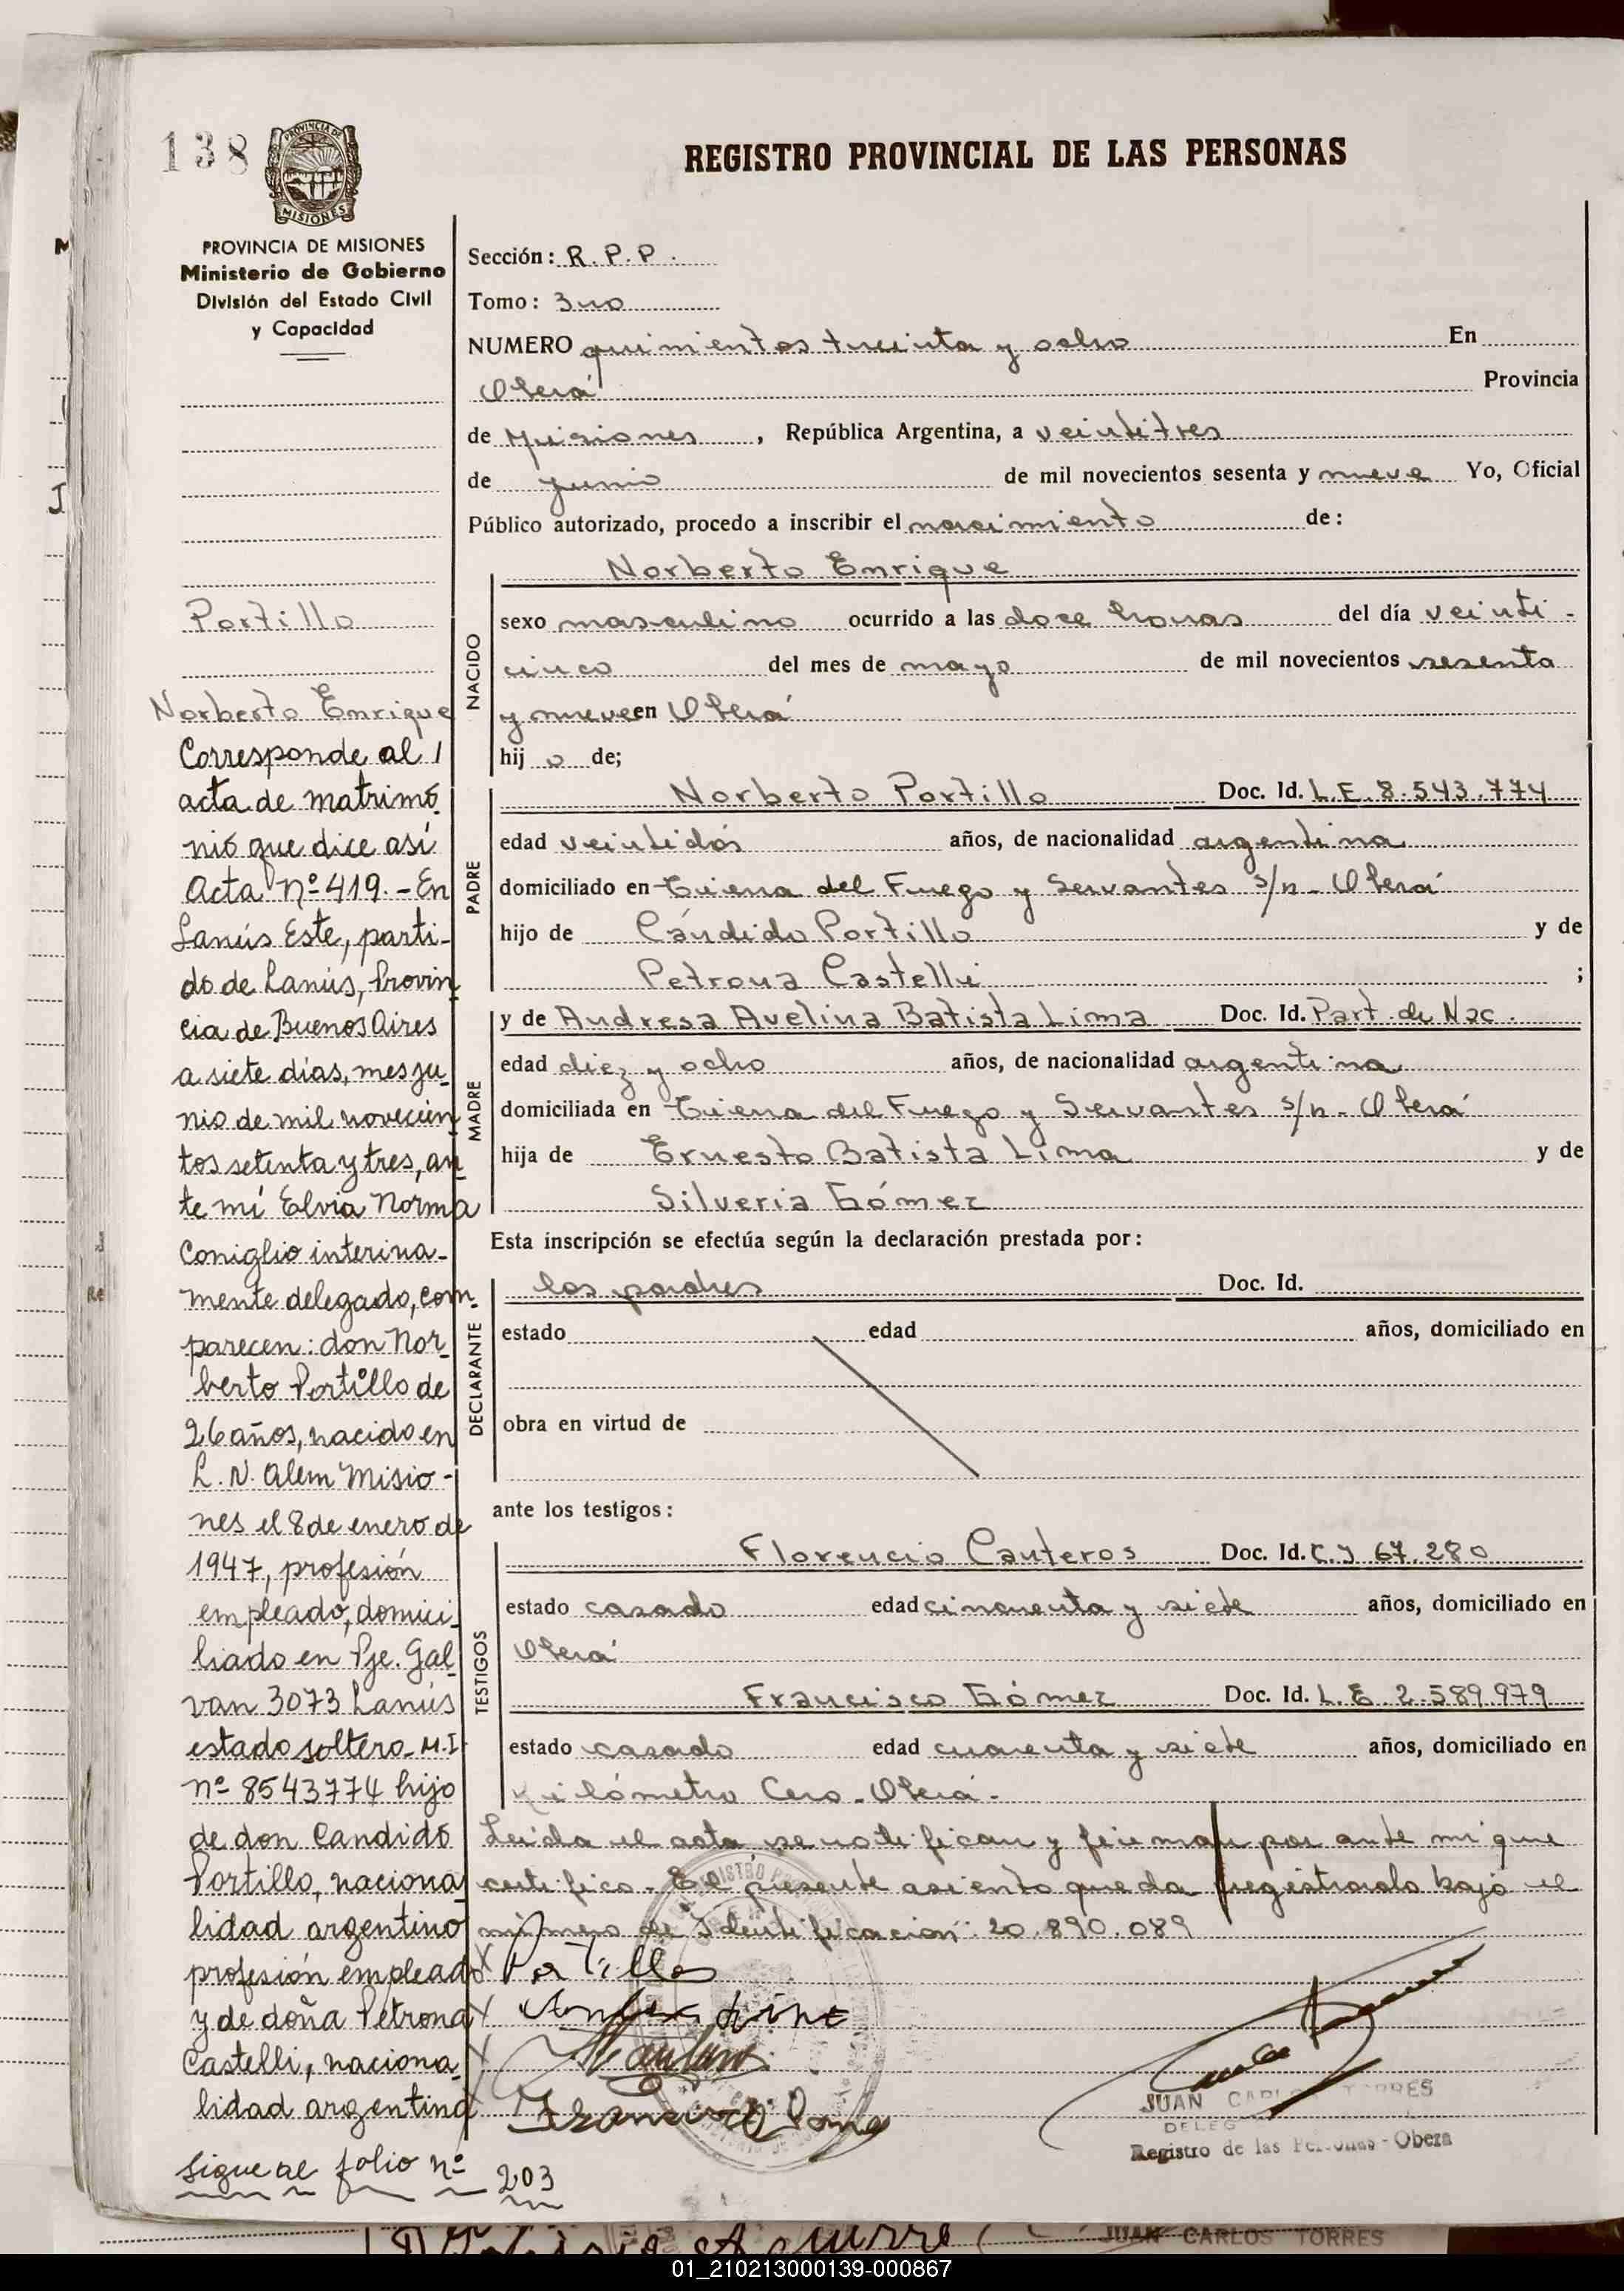 138
PROVINCIA DE
MISIONES
REGISTRO PROVINCIAL DE LAS PERSONAS
PROVINCIA DE MISIONES
Ministerio de Gobierno
División del Estado Civil
y Capacidad
Portillo
Norberto Enrique
Corresponde al
acta de matrimo
nio que dice así
Acta Nº 419.- En
Lanús Este, parti-
do de Lanús, Provin
cia de Buenos Aires
a siete días, mes ju-
nio de mil novecien
tos setenta y tres, an
te mí Elvia Norma
Coniglio interina-
mente delegado, com-
parecen: don Nor-
berto Portillo de
26 años, nacido en
L. N. Alem Misio-
nes el 8 de enero de
1947, profesión
empleado, domici
liado en Pje. Gal-
van 3073 Lanús
estado soltero - M.I.
Nº 8543774 hijo
de don Candido
Portillo, naciona
lidad argentino
profesión empleado
y de doña Petrona
Castelli, naciona
lidad argentina
Sigue al folio nº 203
Sección: R.P.P.
Tomo: 3uo
NUMERO quinientos treinta y ocho En
Oberá Provincia
de Misiones, República Argentina, a veintitres
de junio de mil novecientos sesenta y nueve Yo, Oficial
Público autorizado, procedo a inscribir el nacimiento de:
NACIDO
Norberto Enrique
sexo masculino ocurrido a las doce horas del día veinti-
cinco del mes de mayo de mil novecientos sesenta
y nueve en Oberá
hijo de;
PADRE
Norberto Portillo Doc. Id. L.E. 8.543.774
edad veintidós años, de nacionalidad argentina
domiciliado en Tierra del Fuego y Servantes s/n - Oberá
hijo de Cándido Portillo y de
Petrona Castelli ;
MADRE
y de Andresa Avelina Batista Lima Doc. Id. Part. de Nac.
edad diez y ocho años, de nacionalidad argentina
domiciliada en Tierra del Fuego y Servantes s/n - Oberá
hija de Ernesto Batista Lima y de
Silveria Gómez
Esta inscripción se efectúa según la declaración prestada por:
DECLARANTE
los padres Doc. Id.
estado edad años, domiciliado en
obra en virtud de
ante los testigos:
TESTIGOS
Florencio Canteros Doc. Id. C.I 67.280
estado casado edad cincuenta y siete años, domiciliado en
Oberá
Francisco Gómez Doc. Id. L.E. 2.589.979
estado casado edad cuarenta y siete años, domiciliado en
Kilómetro Cero - Oberá -
Leída el acta se notifican y firman por ante mi que
certifico - El presente asiento queda registrado bajo el
número de Identificación: 20.890.089
Portillo
JUAN CARLOS TORRES
DELEG
Registro de las Personas - Obera
JUAN CARLOS TORRES
01_210213000139-000867